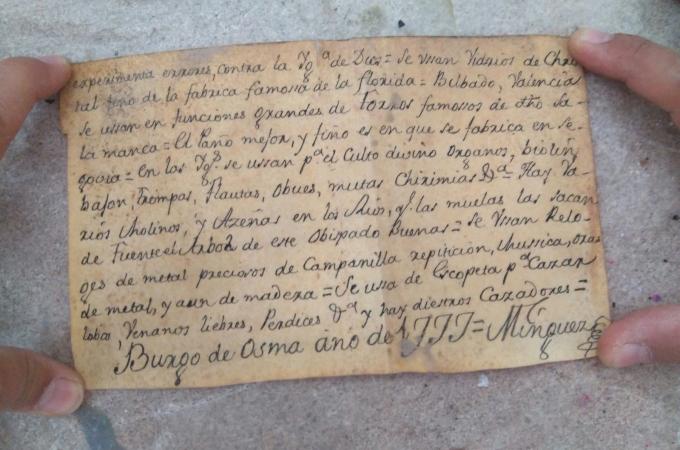 experimenta errores, contra la Yg.ª de Dios = Se Ussan Vidrios de Chris
tal fino de la fabrica famosa de la florida = Bilbado, Valencia
se ussan en funciones grandes de toros famossos de dho Sa-
lamanca = El Paño mejor, y fino es en que se fabrica en Se-
govia = En las Yg.s se ussan p.ª el Culto divino Organos, biolin
bajon, trompas, flautas, Obues, Chirimias &.ª = Hay Va-
rios Molinos, y Azeñas en los Rios, y las muelas las sacan
de Fuentelarbol de este Obispado Buenas = Se Ussan Relo-
ges de metal preciosos de Campanilla repiticion, Mussica,
de metal, y aun de madera = Se ussa de Escopeta p.ª Cazar
lobos, Venanos liebres, Perdices &.ª y hay diestros Cazadores =
Burgo de Osma año de 1777 = Minguez